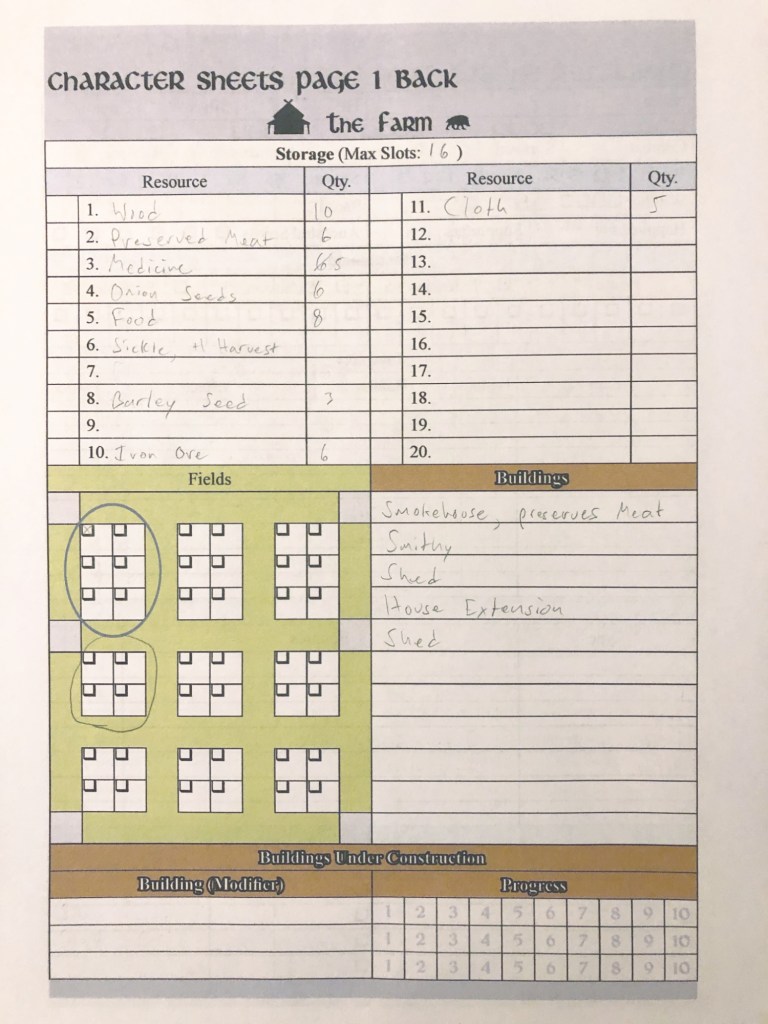 Character Sheets Page 1 Back
The Farm
Storage (Max Slots: 16 )
Resource Qty. Resource Qty.
1. Wood 10 11. Cloth 5
2. Preserved Meat 6 12.
3. Medicine 5 13.
4. Onion Seeds 6 14.
5. Food 8 15.
6. Sickle, +1 Harvest 16.
7. 17.
8. Barley Seed 3 18.
9. 19.
10. Iron Ore 6 20.
Fields Buildings
Smokehouse, preserves Meat
Smithy
Shed
House Extension
Shed
Buildings Under Construction
Building (Modifier) Progress
1 2 3 4 5 6 7 8 9 10
1 2 3 4 5 6 7 8 9 10
1 2 3 4 5 6 7 8 9 10